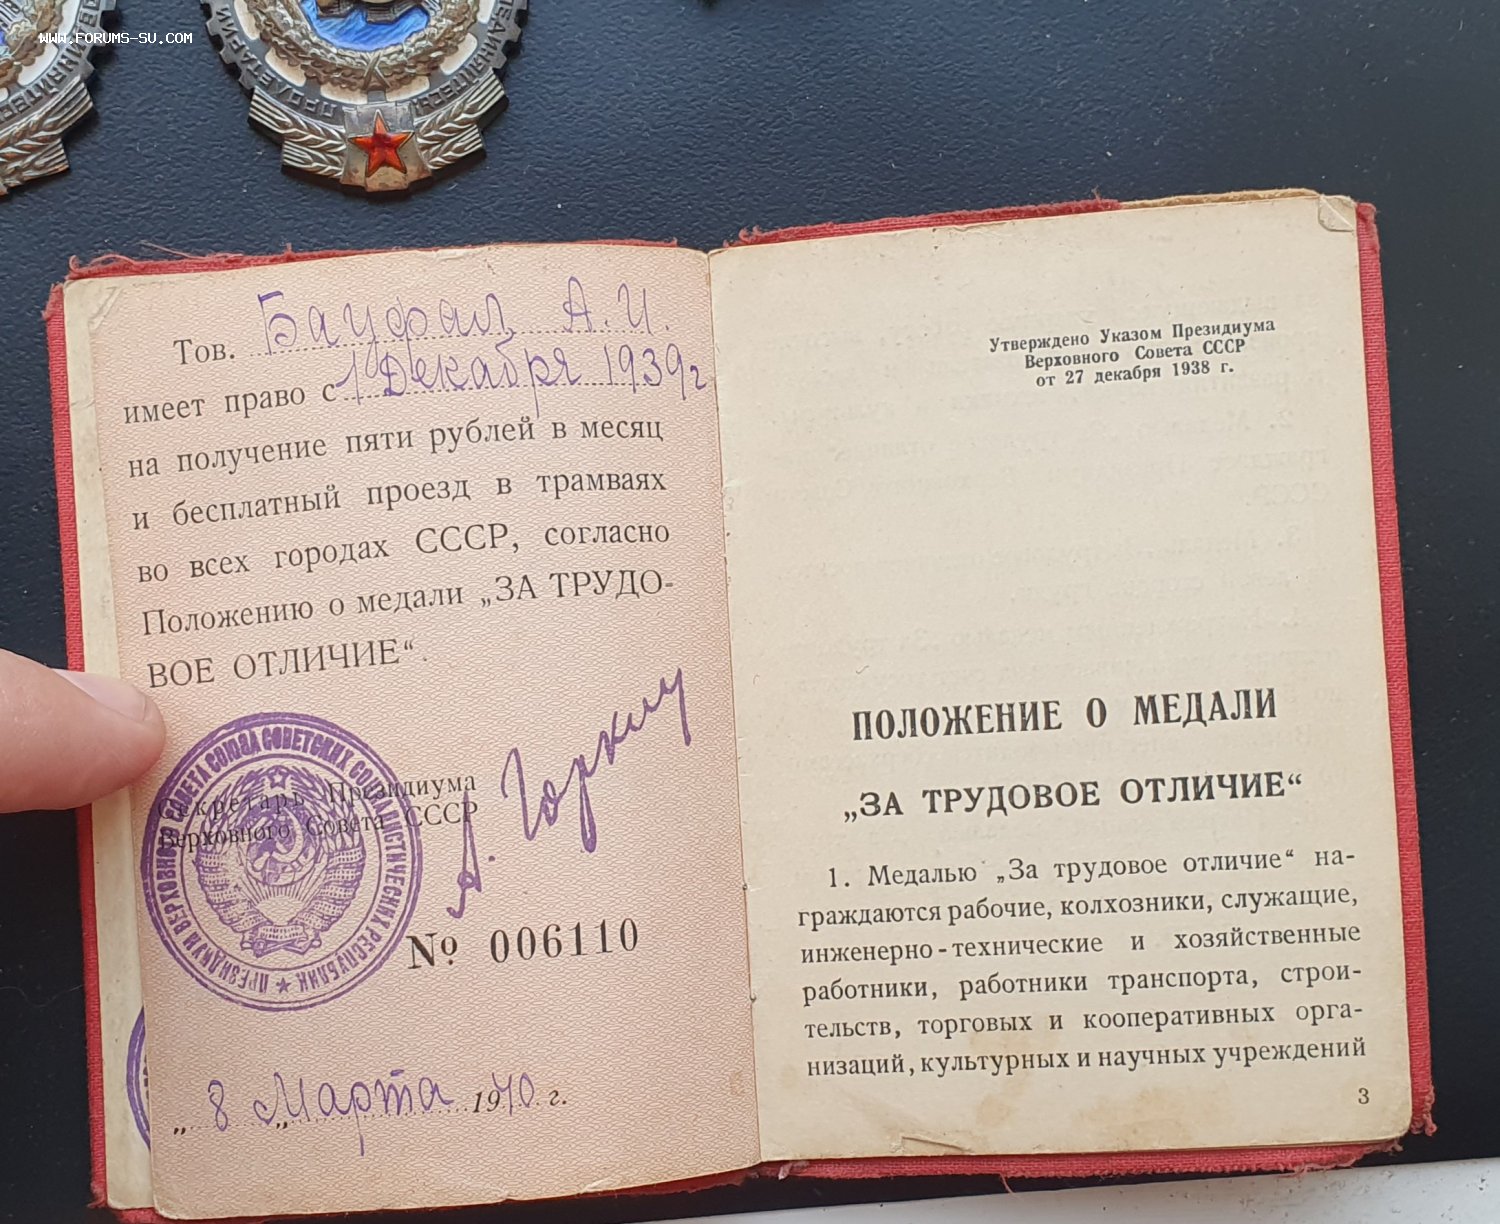 WWW.FORUMS-SU.COM
Тов. Бауфал А.И.
имеет право с 1 Декабря 1939 г
на получение пяти рублей в месяц
и бесплатный проезд в трамваях
во всех городах СССР, согласно
Положению о медали „ЗА ТРУДО-
ВОЕ ОТЛИЧИЕ“.
Секретарь Президиума
Верховного Совета СССР
А. Горкин
ПРЕЗИДИУМ ВЕРХОВНОГО СОВЕТА СОЮЗА СОВЕТСКИХ СОЦИАЛИСТИЧЕСКИХ РЕСПУБЛИК
№ 006110
„8„ Марта 1940 г.
Утверждено Указом Президиума
Верховного Совета СССР
от 27 декабря 1938 г.
ПОЛОЖЕНИЕ О МЕДАЛИ
„ЗА ТРУДОВОЕ ОТЛИЧИЕ“
1. Медалью „За трудовое отличие“ на-
граждаются рабочие, колхозники, служащие,
инженерно-технические и хозяйственные
работники, работники транспорта, строи-
тельств, торговых и кооперативных орга-
низаций, культурных и научных учреждений
3